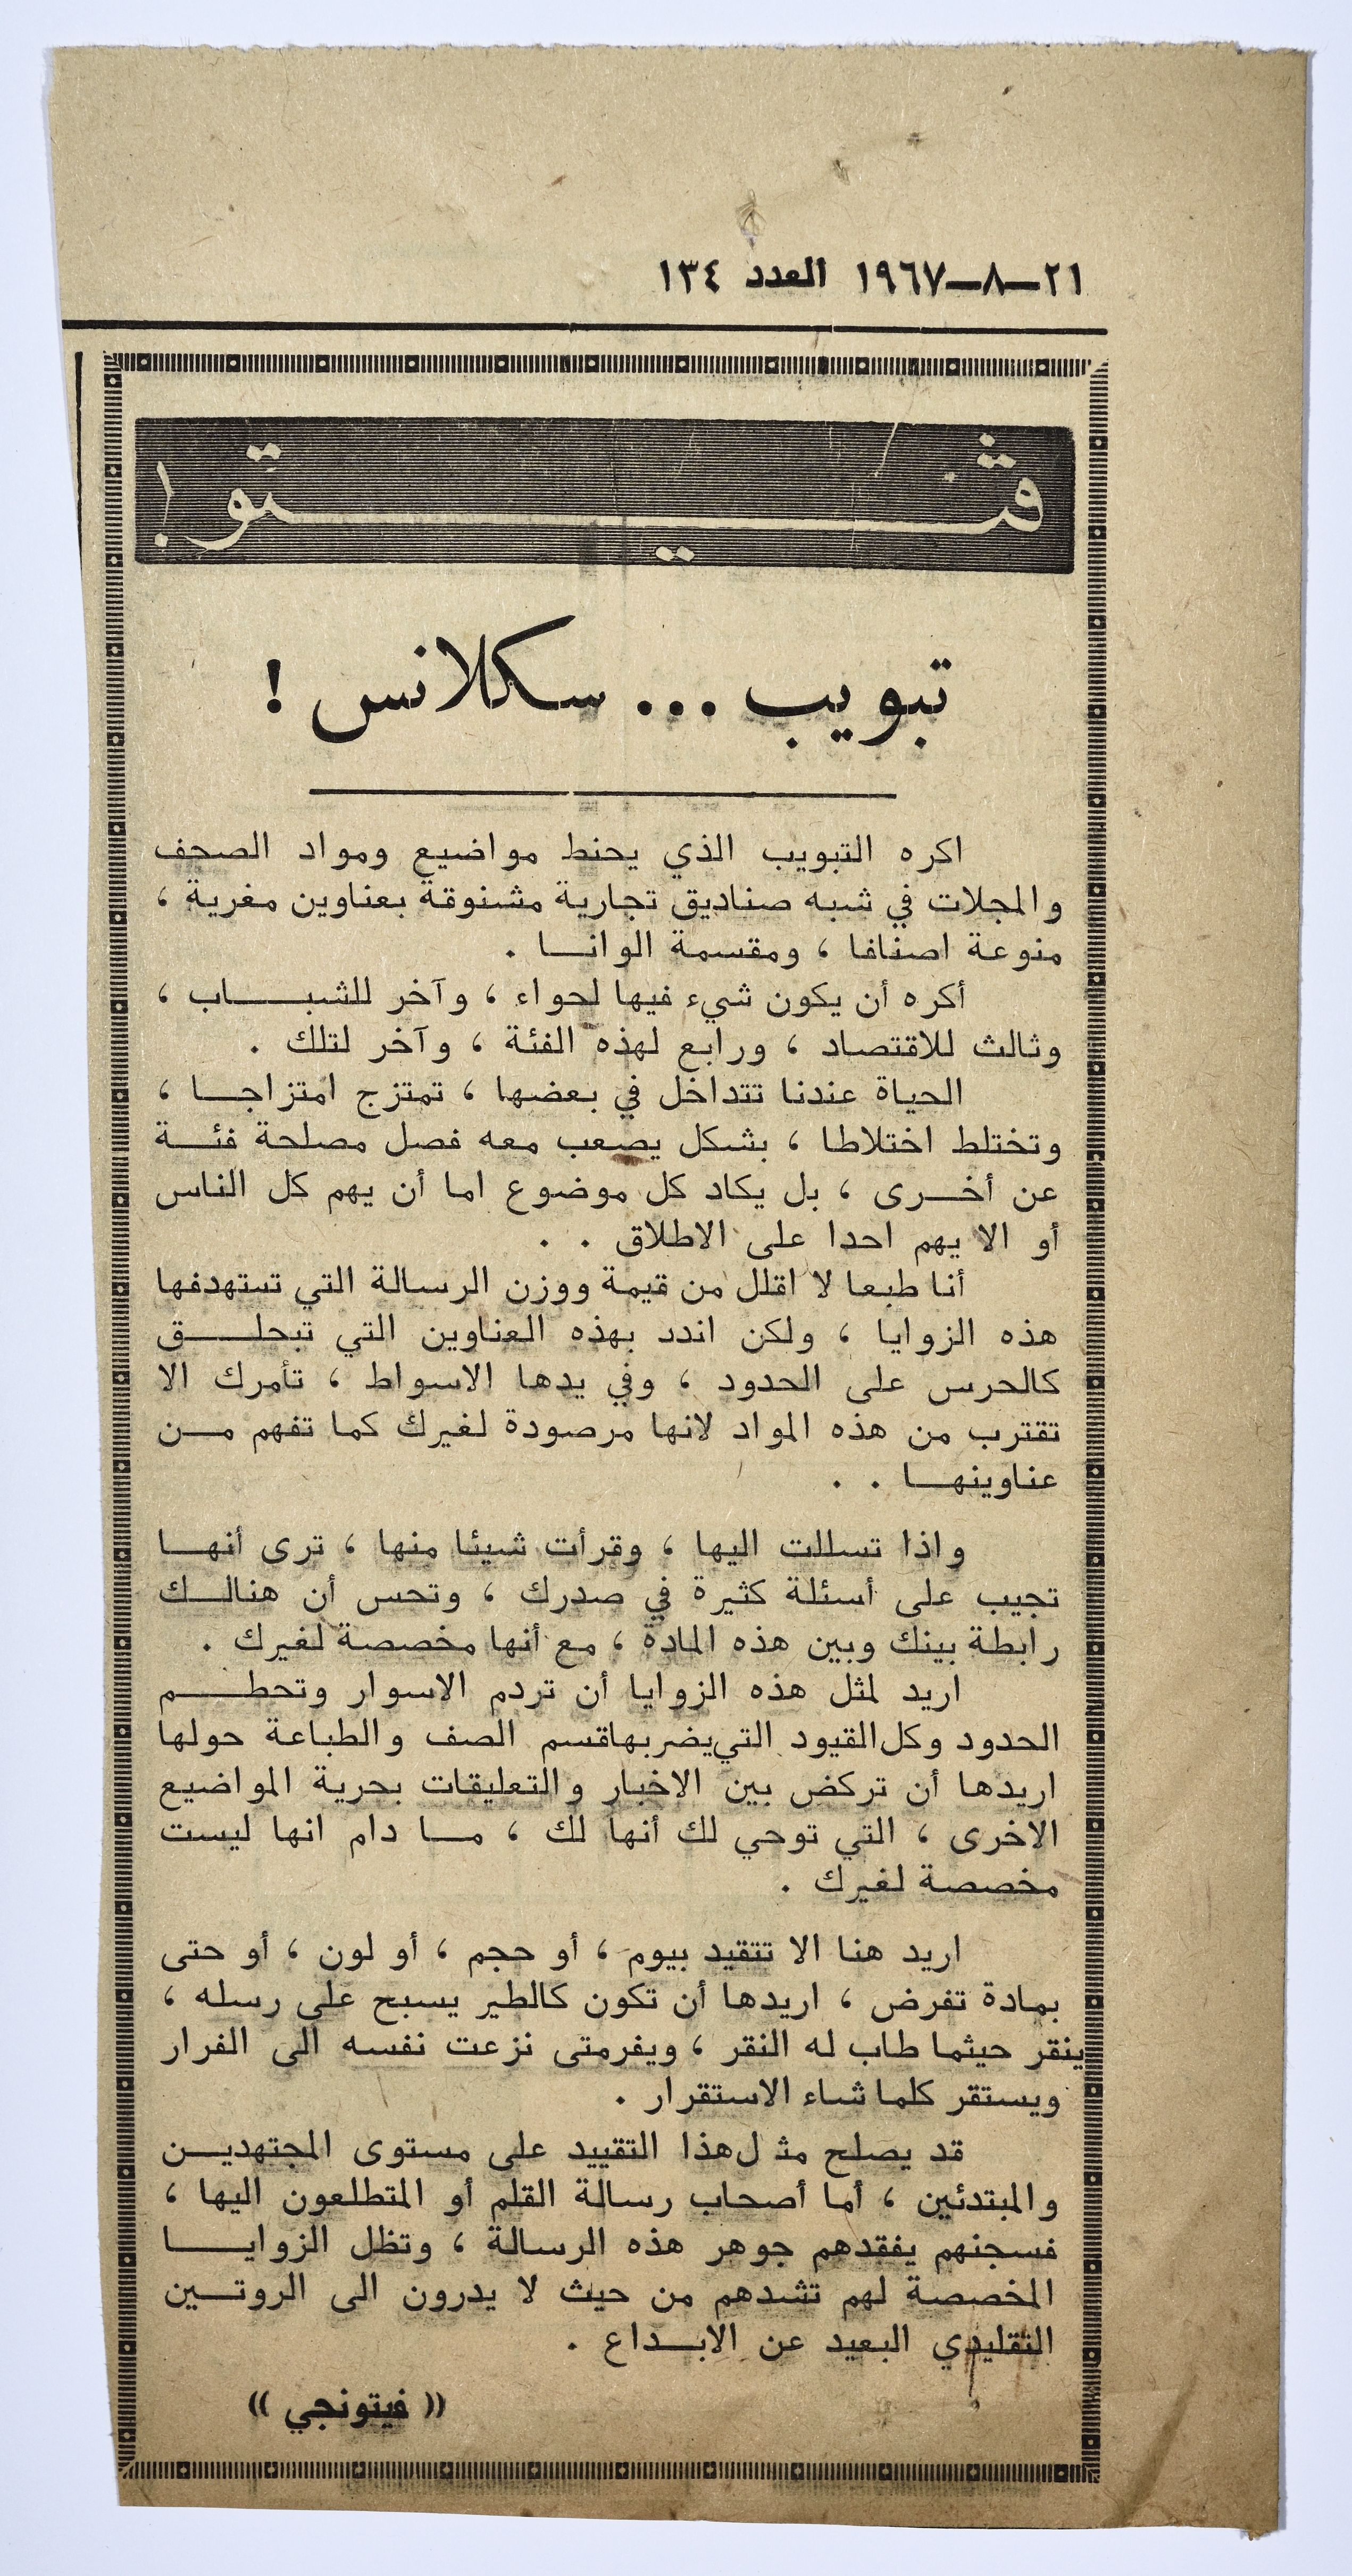 ٢١-٨-١٩٦٧ العدد ١٣٤
ڤيتو !
تبويب ... سكلانس !
اكره التبويب الذي يحنط مواضيع ومواد الصحف
والمجلات في شبه صناديق تجارية مشنوقة بعناوين مغرية ،
منوعة اصنافا ، ومقسمة الوانا .
أكره أن يكون شيء فيها لحواء ، وآخر للشباب ،
وثالث للاقتصاد ، ورابع لهذه الفئة ، وآخر لتلك .
الحياة عندنا تتداخل في بعضها ، تمتزج امتزاجا ،
وتختلط اختلاطا ، بشكل يصعب معه فصل مصلحة فئة
عن أخرى ، بل يكاد كل موضوع اما أن يهم كل الناس
أو الا يهم احدا على الاطلاق . .
أنا طبعا لا اقلل من قيمة ووزن الرسالة التي تستهدفها
هذه الزوايا ، ولكن اندد بهذه العناوين التي تبحلق
كالحرس على الحدود ، وفي يدها الاسواط ، تأمرك الا
تقترب من هذه المواد لانها مرصودة لغيرك كما تفهم من
عناوينها . .
واذا تسللت اليها ، وقرأت شيئا منها ، ترى أنها
تجيب على أسئلة كثيرة في صدرك ، وتحس أن هنالك
رابطة بينك وبين هذه المادة ، مع أنها مخصصة لغيرك .
اريد لمثل هذه الزوايا أن تردم الاسوار وتحطم
الحدود وكل القيود التي يضربها قسم الصف والطباعة حولها
اريدها أن تركض بين الاخبار والتعليقات بحرية المواضيع
الاخرى ، التي توحي لك أنها لك ، ما دام انها ليست
مخصصة لغيرك .
اريد هنا الا تتقيد بيوم ، أو حجم ، أو لون ، أو حتى
بمادة تفرض ، اريدها أن تكون كالطير يسبح على رسله ،
ينقر حيثما طاب له النقر ، ويفرمتى نزعت نفسه الى الفرار
ويستقر كلما شاء الاستقرار .
قد يصلح مثل هذا التقييد على مستوى المجتهدين
والمبتدئين ، أما أصحاب رسالة القلم أو المتطلعون اليها ،
فسجنهم يفقدهم جوهر هذه الرسالة ، وتظل الزوايا
المخصصة لهم تشدهم من حيث لا يدرون الى الروتين
التقليدي البعيد عن الابداع .
(( فيتونجي ))